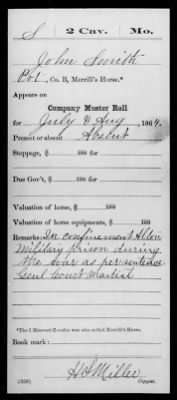 S 2 Cav. Mo.
John Smith
Pvt., Co. B, Merrill's Horse.*
Appears on
Company Muster Roll
for July & Aug, 1864.
Present or absent Absent
Stoppage, $ 100 for
Due Gov't, $ 100 for
Valuation of horse, $ 100
Valuation of horse equipments, $ 100
Remarks: In confinement Alton
Military prison during
the war as per sentence
Genl Court Martial
*The 2 Missouri Cavalry was also called Merrill's Horse.
Book mark:
H S Miller
(358) Copyist.